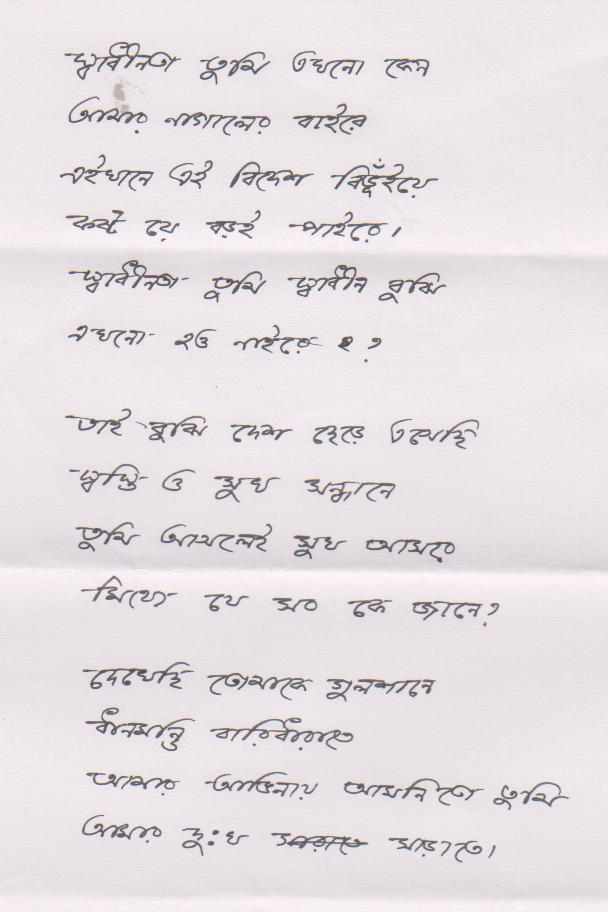 স্বাধীনতা তুমি এখনো কেন
আমার নাগালের বাইরে
এইখানে এই বিদেশ বিভূঁইয়ে
কষ্ট যে বড়ই পাইরে।
স্বাধীনতা তুমি স্বাধীন বুঝি
এখনো হও নাইরে ?
তাই বুঝি দেশ ছেড়ে এসেছি
স্বস্তি ও সুখ সন্ধানে
তুমি আসলেই সুখ আসবে
মিথ্যে যে সব কে জানে?
দেখেছি তোমাকে গুলশানে
ধানমন্ডি বারিধারাতে
আমার আঙিনায় আসনিতো তুমি
আমার দুঃখ সারাতে।